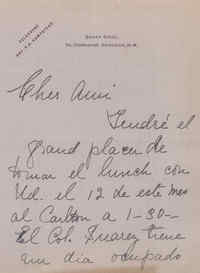 Cher Ami
Tendré el
grand placer de
tomar el lunch con
Ud. el 12 de este mes
al Carlton a 1-30-
El Col. Suarez tiene
un dia ocupado